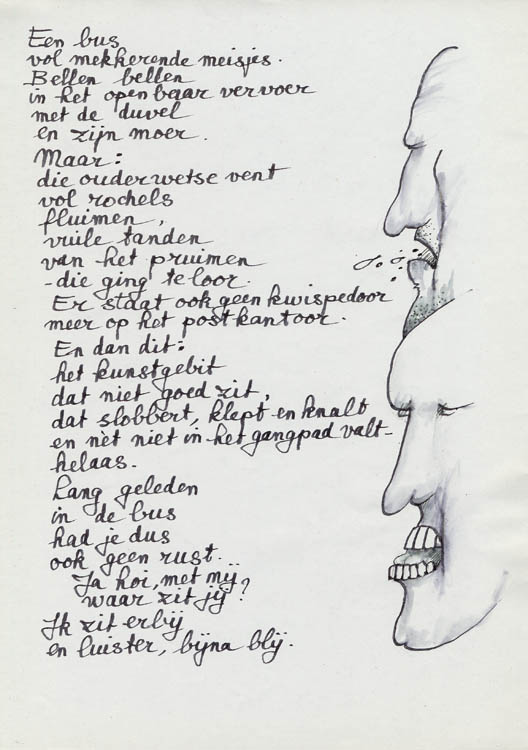 Een bus
vol mekkerende meisjes.
Bellen bellen
in het openbaar vervoer
met de duvel
en zijn moer.
Maar:
die ouderwetse vent
vol rochels
fluimen,
vuile tanden
van het pruimen
-die ging te loor.
Er staat ook geen kwispedoor
meer op het postkantoor.
En dan dit:
het kunstgebit
dat niet goed zit,
dat slobbert, klept en knalt
en nèt niet in het gangpad valt-
helaas.
Lang geleden
in de bus
had je dus
ook geen rust...
Ja hoi, met mij
waar zit jij?
Ik zit erbij
en luister, bijna blij.